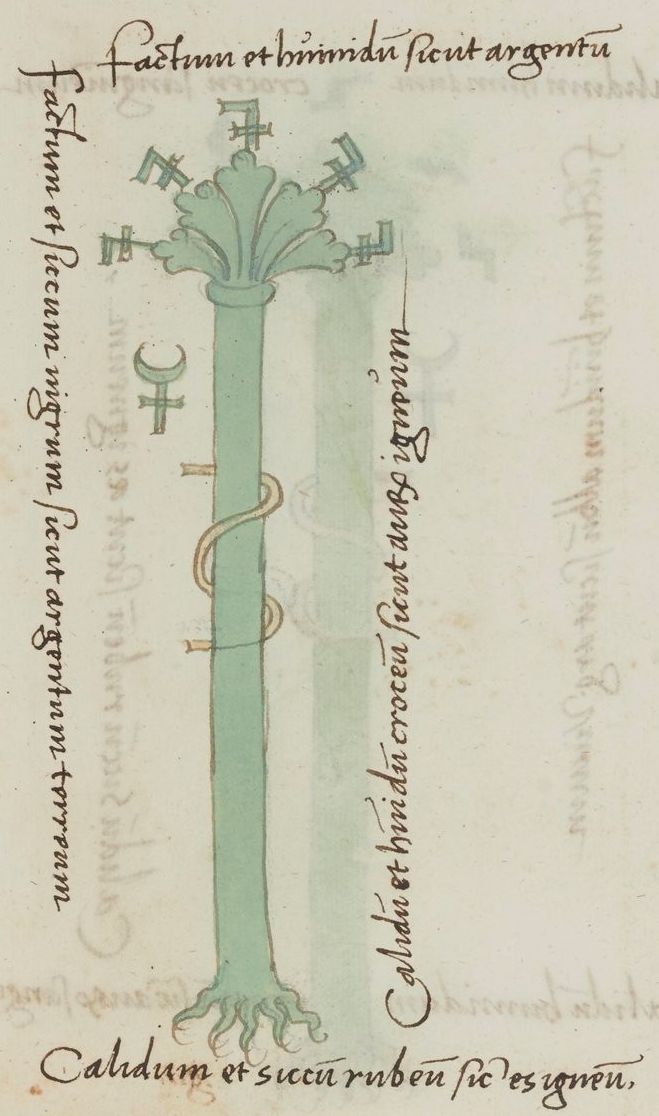 Factum et humidū sicut argentū
Factum et siccum nigrum sicut argentum terreum
Calidū et humidū croceū sicut igneum
Calidum et siccū rubeū sic es igneū.